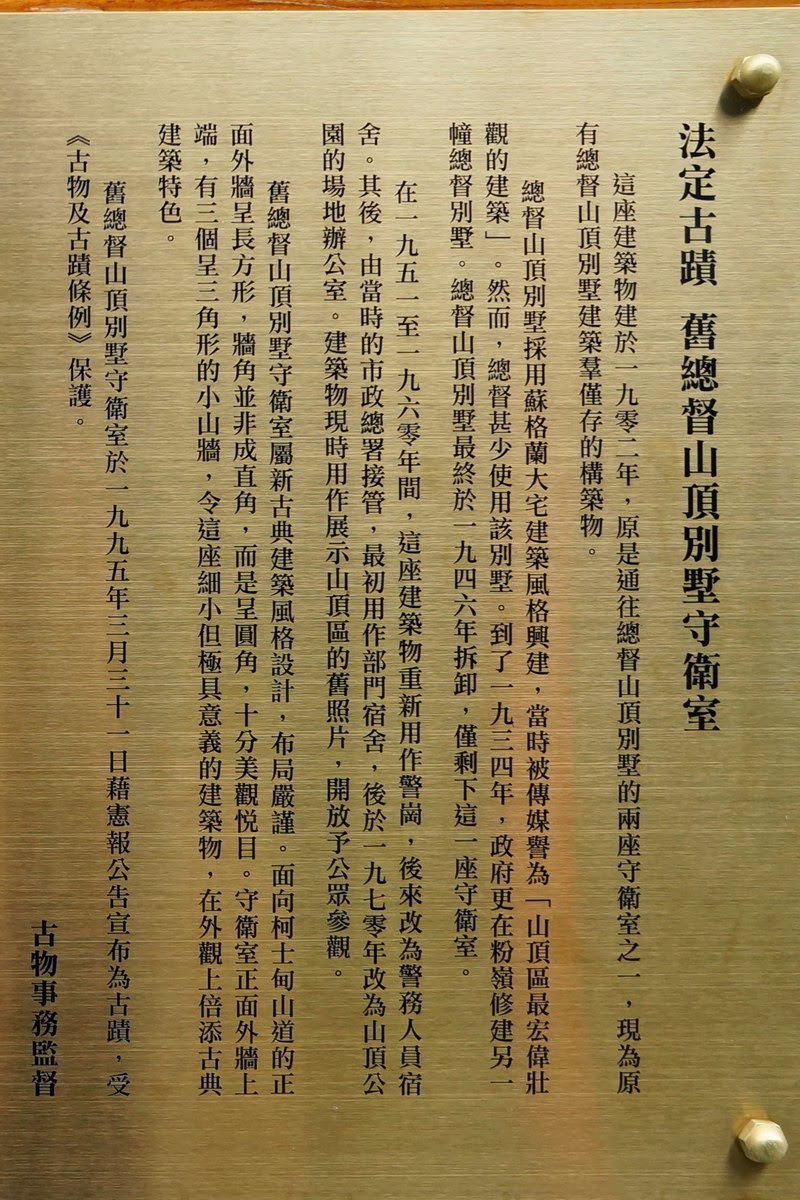 法定古蹟 舊總督山頂別墅守衛室
這座建築物建於一九零二年，原是通往總督山頂別墅的兩座守衛室之一，現為原
有總督山頂別墅建築羣僅存的構築物。
總督山頂別墅採用蘇格蘭大宅建築風格興建，當時被傳媒譽為「山頂區最宏偉壯
觀的建築」。然而，總督甚少使用該別墅。到了一九三四年，政府更在粉嶺修建另一
幢總督別墅。總督山頂別墅最終於一九四六年拆卸，僅剩下這一座守衛室。
在一九五一至一九六零年間，這座建築物重新用作警崗，後來改為警務人員宿
舍。其後，由當時的市政總署接管，最初用作部門宿舍，後於一九七零年改為山頂公
園的場地辦公室。建築物現時用作展示山頂區的舊照片，開放予公眾參觀。
舊總督山頂別墅守衛室屬新古典建築風格設計，布局嚴謹。面向柯士甸山道的正
面外牆呈長方形，牆角並非成直角，而是呈圓角，十分美觀悦目。守衛室正面外牆上
端，有三個呈三角形的小山牆，令這座細小但極具意義的建築物，在外觀上倍添古典
建築特色。
舊總督山頂別墅守衛室於一九九五年三月三十一日藉憲報公告宣布為古蹟，受
《古物及古蹟條例》保護。
古物事務監督